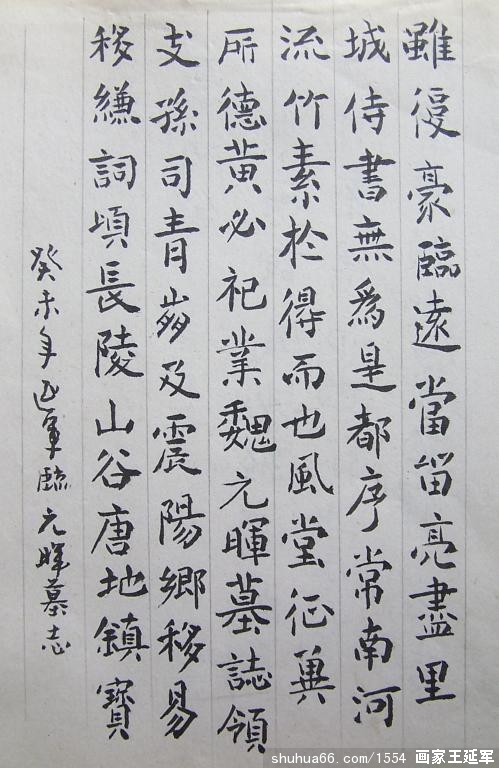 雖復豪臨遠當留亮盡里
城侍書無為是都序常南河
流竹素於得而也風堂征冀
所德黃必祀業魏元暉墓誌領
支孫司青岁及震陽鄉移易
移縑詞頃長陵山谷唐地鎮寶
癸未年延軍臨元暉墓志
shuhua66.com/1554 画家王延军